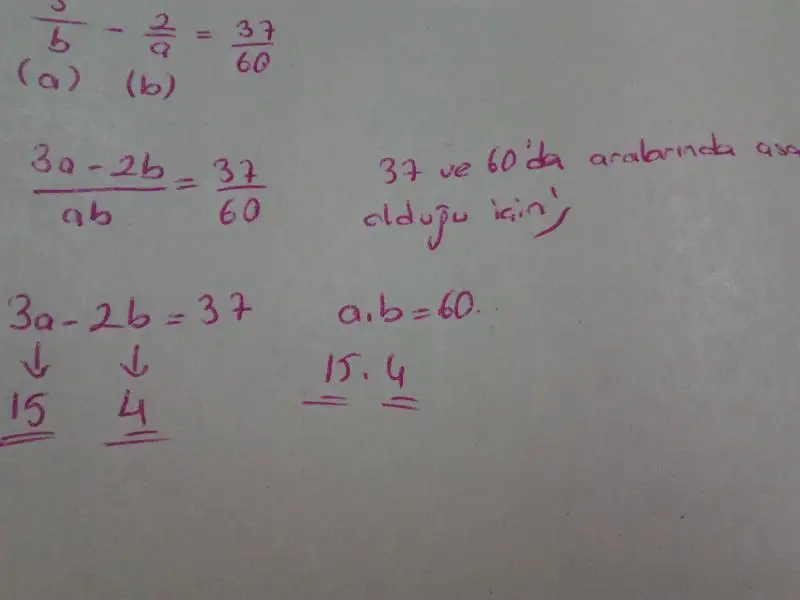 /b - 2/a = 37/60
(a) (b)
3a - 2b / ab = 37/60
37 ve 60'da aralarında
olduğu için,
3a - 2b = 37
a.b = 60.
↓ ↓
15 4
15 . 4